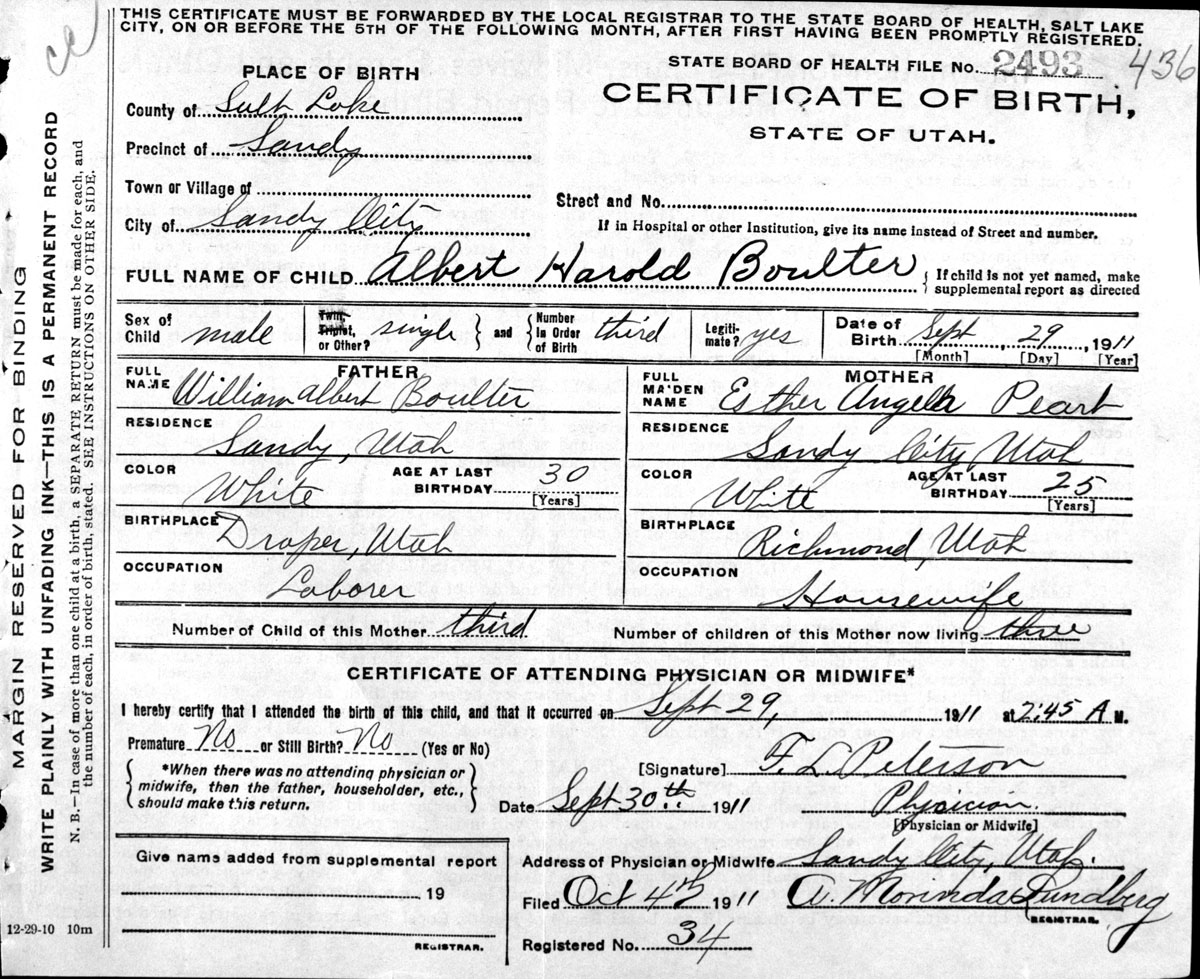 THIS CERTIFICATE MUST BE FORWARDED BY THE LOCAL REGISTRAR TO THE STATE BOARD OF HEALTH, SALT LAKE
CITY, ON OR BEFORE THE 5TH OF THE FOLLOWING MONTH, AFTER FIRST HAVING BEEN PROMPTLY REGISTERED.
STATE BOARD OF HEALTH FILE No. 2493 436
CERTIFICATE OF BIRTH,
STATE OF UTAH.
PLACE OF BIRTH
County of Salt Lake
Precinct of Sandy
Town or Village of
City of Sandy City
Street and No.
If in Hospital or other Institution, give its name instead of Street and number.
FULL NAME OF CHILD Albert Harold Boulter { If child is not yet named, make
supplemental report as directed
Sex of
Child male
Twin,
Triplet,
or Other? single } and { Number
in Order
of Birth third
Legiti-
mate? yes
Date of
Birth Sept 29, 1911
[Month] [Day] [Year]
FATHER
FULL
NAME William Albert Boulter
RESIDENCE
Sandy, Utah
COLOR
White
AGE AT LAST
BIRTHDAY 30
[Years]
BIRTHPLACE
Draper, Utah
OCCUPATION
Laborer
MOTHER
FULL
MAIDEN
NAME Esther Angela Peart
RESIDENCE
Sandy City, Utah
COLOR
White
AGE AT LAST
BIRTHDAY 25
[Years]
BIRTHPLACE
Richmond, Utah
OCCUPATION
Housewife
Number of Child of this Mother third
Number of children of this Mother now living three
CERTIFICATE OF ATTENDING PHYSICIAN OR MIDWIFE*
I hereby certify that I attended the birth of this child, and that it occurred on Sept 29, 1911 at 2:45 A M.
Premature? No or Still Birth? No (Yes or No)
{ *When there was no attending physician or
midwife, then the father, householder, etc.,
should make this return. }
[Signature] F. L. Peterson
Date Sept 30th 1911 Physician
[Physician or Midwife]
Give name added from supplemental report
19
REGISTRAR.
Address of Physician or Midwife Sandy City, Utah.
Filed Oct 4th 1911 A. Morinda Lundberg
REGISTRAR.
Registered No. 34
MARGIN RESERVED FOR BINDING
WRITE PLAINLY WITH UNFADING INK—THIS IS A PERMANENT RECORD
N. B.—In case of more than one child at a birth, a SEPARATE RETURN must be made for each, and
the number of each, in order of birth, stated. SEE INSTRUCTIONS ON OTHER SIDE.
12-29-10 10m